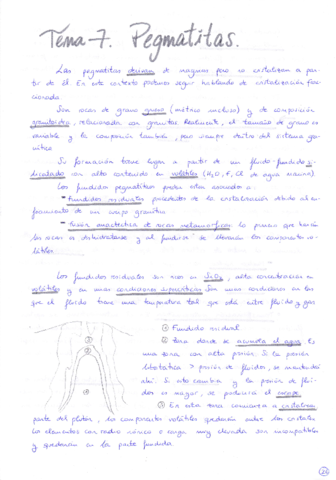 Tema-7. Pegmatitas.
Las pegmatitas derivan de magmas pero no cristalizan a par-
tir de él. En este contexto podremos seguir hablando de cristalización frac-
cionada.
Son rocas de grano grueso (métrico incluso) y de composición
granitoidea, relacionadas con granitos. Realmente, el tamaño de grano es
variable y la composición también, pero siempre dentro del sistema gra-
nítico.
Su formación tiene lugar a partir de un fluido-fundido si-
licatado con alto contenido en volátiles (H2O, F, Cl de agua marina).
Los fundidos pegmatíticos pueden estar asociados a:
- Fundidos residuales procedentes de la cristalización debido al en-
friamiento de un cuerpo granítico
- Fusión anatéctica de rocas metamórficas: la presión que harán
las rocas es deshidratarse y al fundirse se liberarán los componentes vo-
látiles.
Los fundidos residuales son ricos en SiO2, alta concentración en
volátiles y en unas condiciones supercríticas. Son unas condiciones en las
que el fluido tiene una temperatura tal que está entre fluido y gas
① Fundido residual
② Zona donde se acumula el agua. Es
una zona con alta presión. Si la presión
litostática > presión de fluidos, se mantendrá
ahí. Si esto cambia y la presión de flui-
dos es mayor, se producirá el escape.
③ En esta zona comienza a cristalizar
parte del plutón, los componentes volátiles quedarán entre los cristales.
Los elementos con radio iónico o carga muy elevada son incompatibles
y quedarán en la parte fundida.